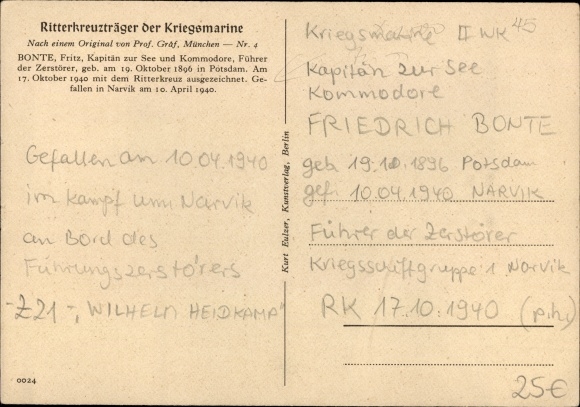 Ritterkreuzträger der Kriegsmarine
Nach einem Original von Prof. Gräf, München — Nr. 4
BONTE, Fritz, Kapitän zur See und Kommodore, Führer
der Zerstörer, geb. am 19. Oktober 1896 in Potsdam. Am
17. Oktober 1940 mit dem Ritterkreuz ausgezeichnet. Ge-
fallen in Narvik am 10. April 1940.
Gefallen am 10.04.1940
im Kampf um Narvik
an Bord des
Führungszerstörers
-Z21-„WILHELM HEIDKAMP"
0024
Kurt Eulzer, Kunstverlag, Berlin
Kriegsmarine II WK 45
Kapitän zur See
Kommodore
FRIEDRICH BONTE
geb 19.10.1896 Potsdam
gef. 10.04.1940 NARVIK
Führer der Zerstörer
Kriegsschiffgruppe 1 Narvik
RK 17.10.1940 (p.h.)
25€